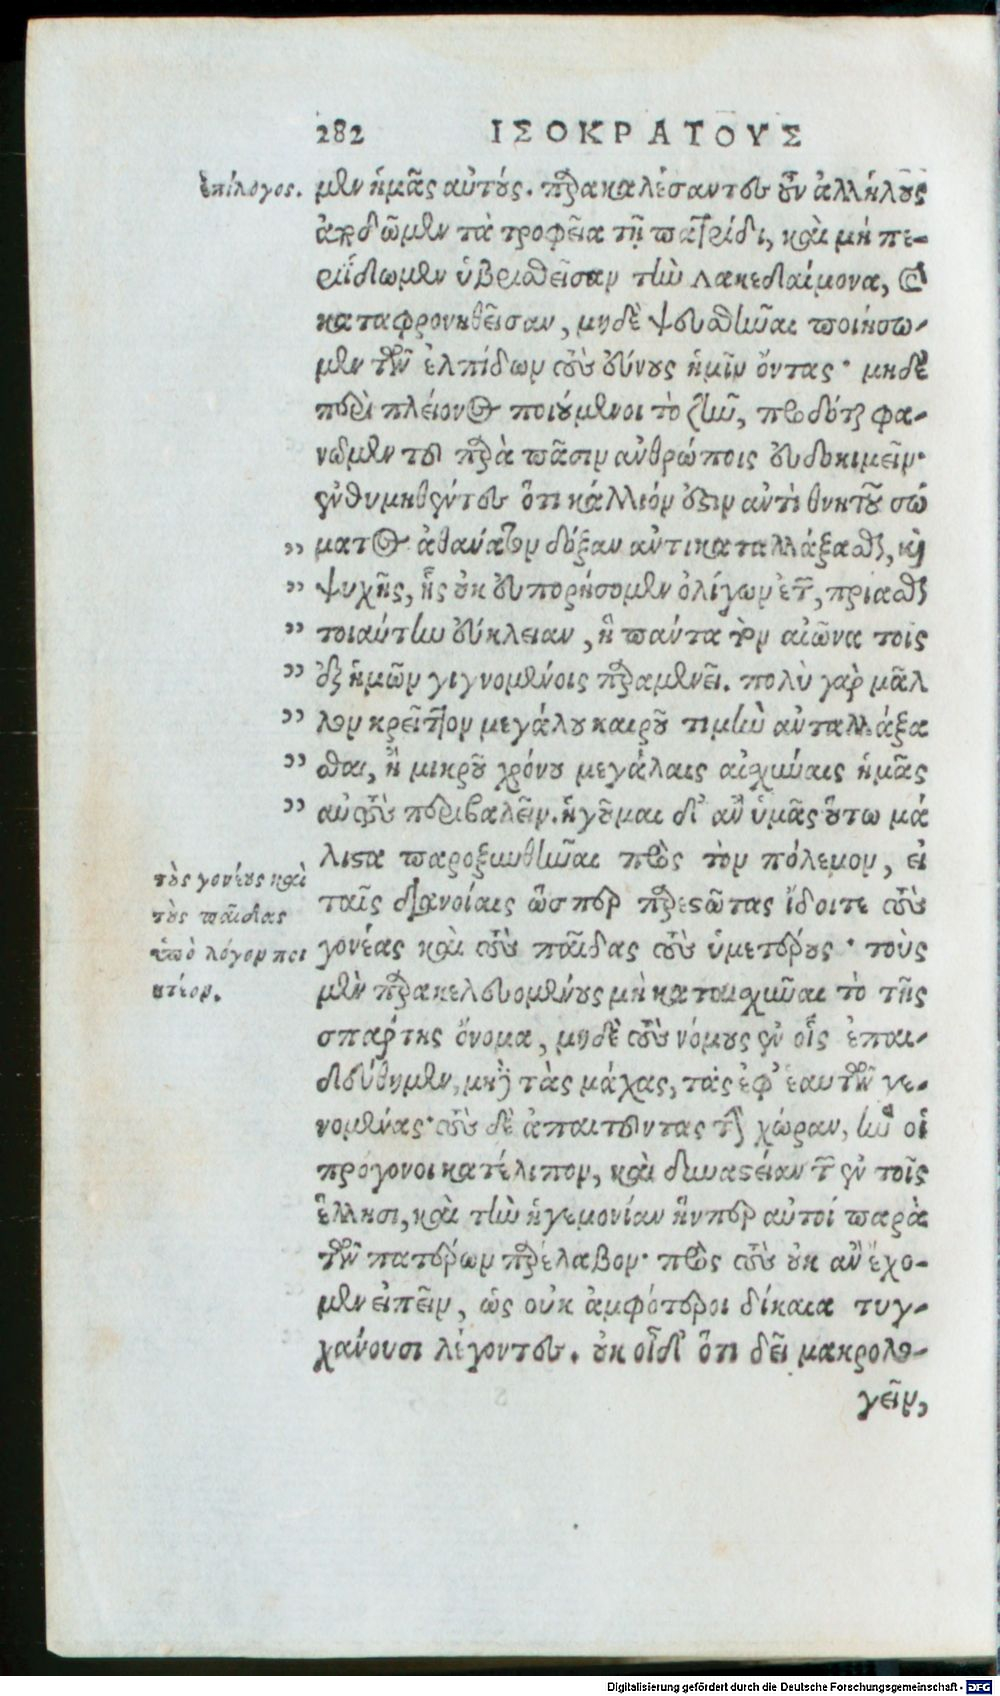 282 ΙΣΟΚΡΑΤΟΥΣ
ἐπίλογος. μεν ἡμᾶς αὐτούς. παρακαλέσαντες οὖν ἀλλήλους
ἀποδῶμεν τὰ τροφεῖα τῇ πατρίδι, καὶ μὴ πε-
ριΐδωμεν ὑβρισθεῖσαν τὴν Λακεδαίμονα, καὶ
καταφρονηθεῖσαν, μηδὲ ψευσθῆναι ποιήσω-
μεν τῶν ἐλπίδων τοὺς εὔνους ἡμῖν ὄντας· μηδὲ
περὶ πλείονος ποιούμενοι τὸ ζῆν, τοῦ φα-
νῶμεν τοῦ παρὰ πᾶσιν ἀνθρώποις εὐδοκιμεῖν·
ἐνθυμηθέντες ὅτι κάλλιόν ἐστιν ἀντὶ θνητοῦ σώ
„ ματος ἀθάνατον δόξαν ἀντικαταλλάξασθαι, καὶ
„ ψυχῆς, ἧς οὐκ εὐπορήσομεν ὀλίγων ἐτῶν, πρίασθαι
„ τοιαύτην εὔκλειαν, ἣ πάντα τὸν αἰῶνα τοῖς
„ ἐξ ἡμῶν γιγνομένοις παραμενεῖ. πολὺ γὰρ μᾶλ
„ λον κρεῖττον μεγάλου καιροῦ τιμὴν ἀνταλλάξα
„ σθαι, ἢ μικροῦ χρόνου μεγάλαις αἰσχύναις ἡμᾶς
„ αὐτοὺς περιβαλεῖν. ἡγοῦμαι δ' ἂν ὑμᾶς οὕτω μά
λιστα παροξυνθῆναι πρὸς τὸν πόλεμον, εἰ
τοὺς γονέους καὶ
τοὺς παῖδας
ὑπὸ λόγον πει
στέον.
ταῖς διανοίαις ὥσπερ παρεστῶτας ἴδοιτε τοὺς
γονέας καὶ τοὺς παῖδας τοὺς ὑμετέρους· τοὺς
μὲν παρακελευομένους μὴ καταισχῦναι τὸ τῆς
σπάρτης ὄνομα, μηδὲ τοὺς νόμους ἐν οἷς ἐπαι-
δεύθημεν, μηδὲ τὰς μάχας, τὰς ἐφ' ἑαυτῶν γε-
νομένας· τοὺς δὲ ἀπαιτοῦντας τὴν χώραν, ἣν οἱ
πρόγονοι κατέλιπον, καὶ δυναστείαν τὴν ἐν τοῖς
ἕλλησι, καὶ τὴν ἡγεμονίαν ἥνπερ αὐτοὶ παρὰ
τῶν πατέρων παρέλαβον· πρὸς τοὺς οὐκ ἂν ἔχο-
μεν εἰπεῖν, ὡς οὐκ ἀμφότεροι δίκαια τυγ-
χάνουσι λέγοντες. οὐκ οἶδ' ὅτι δεῖ μακρολο-
γεῖν,
Digitalisierung gefördert durch die Deutsche Forschungsgemeinschaft - DFG